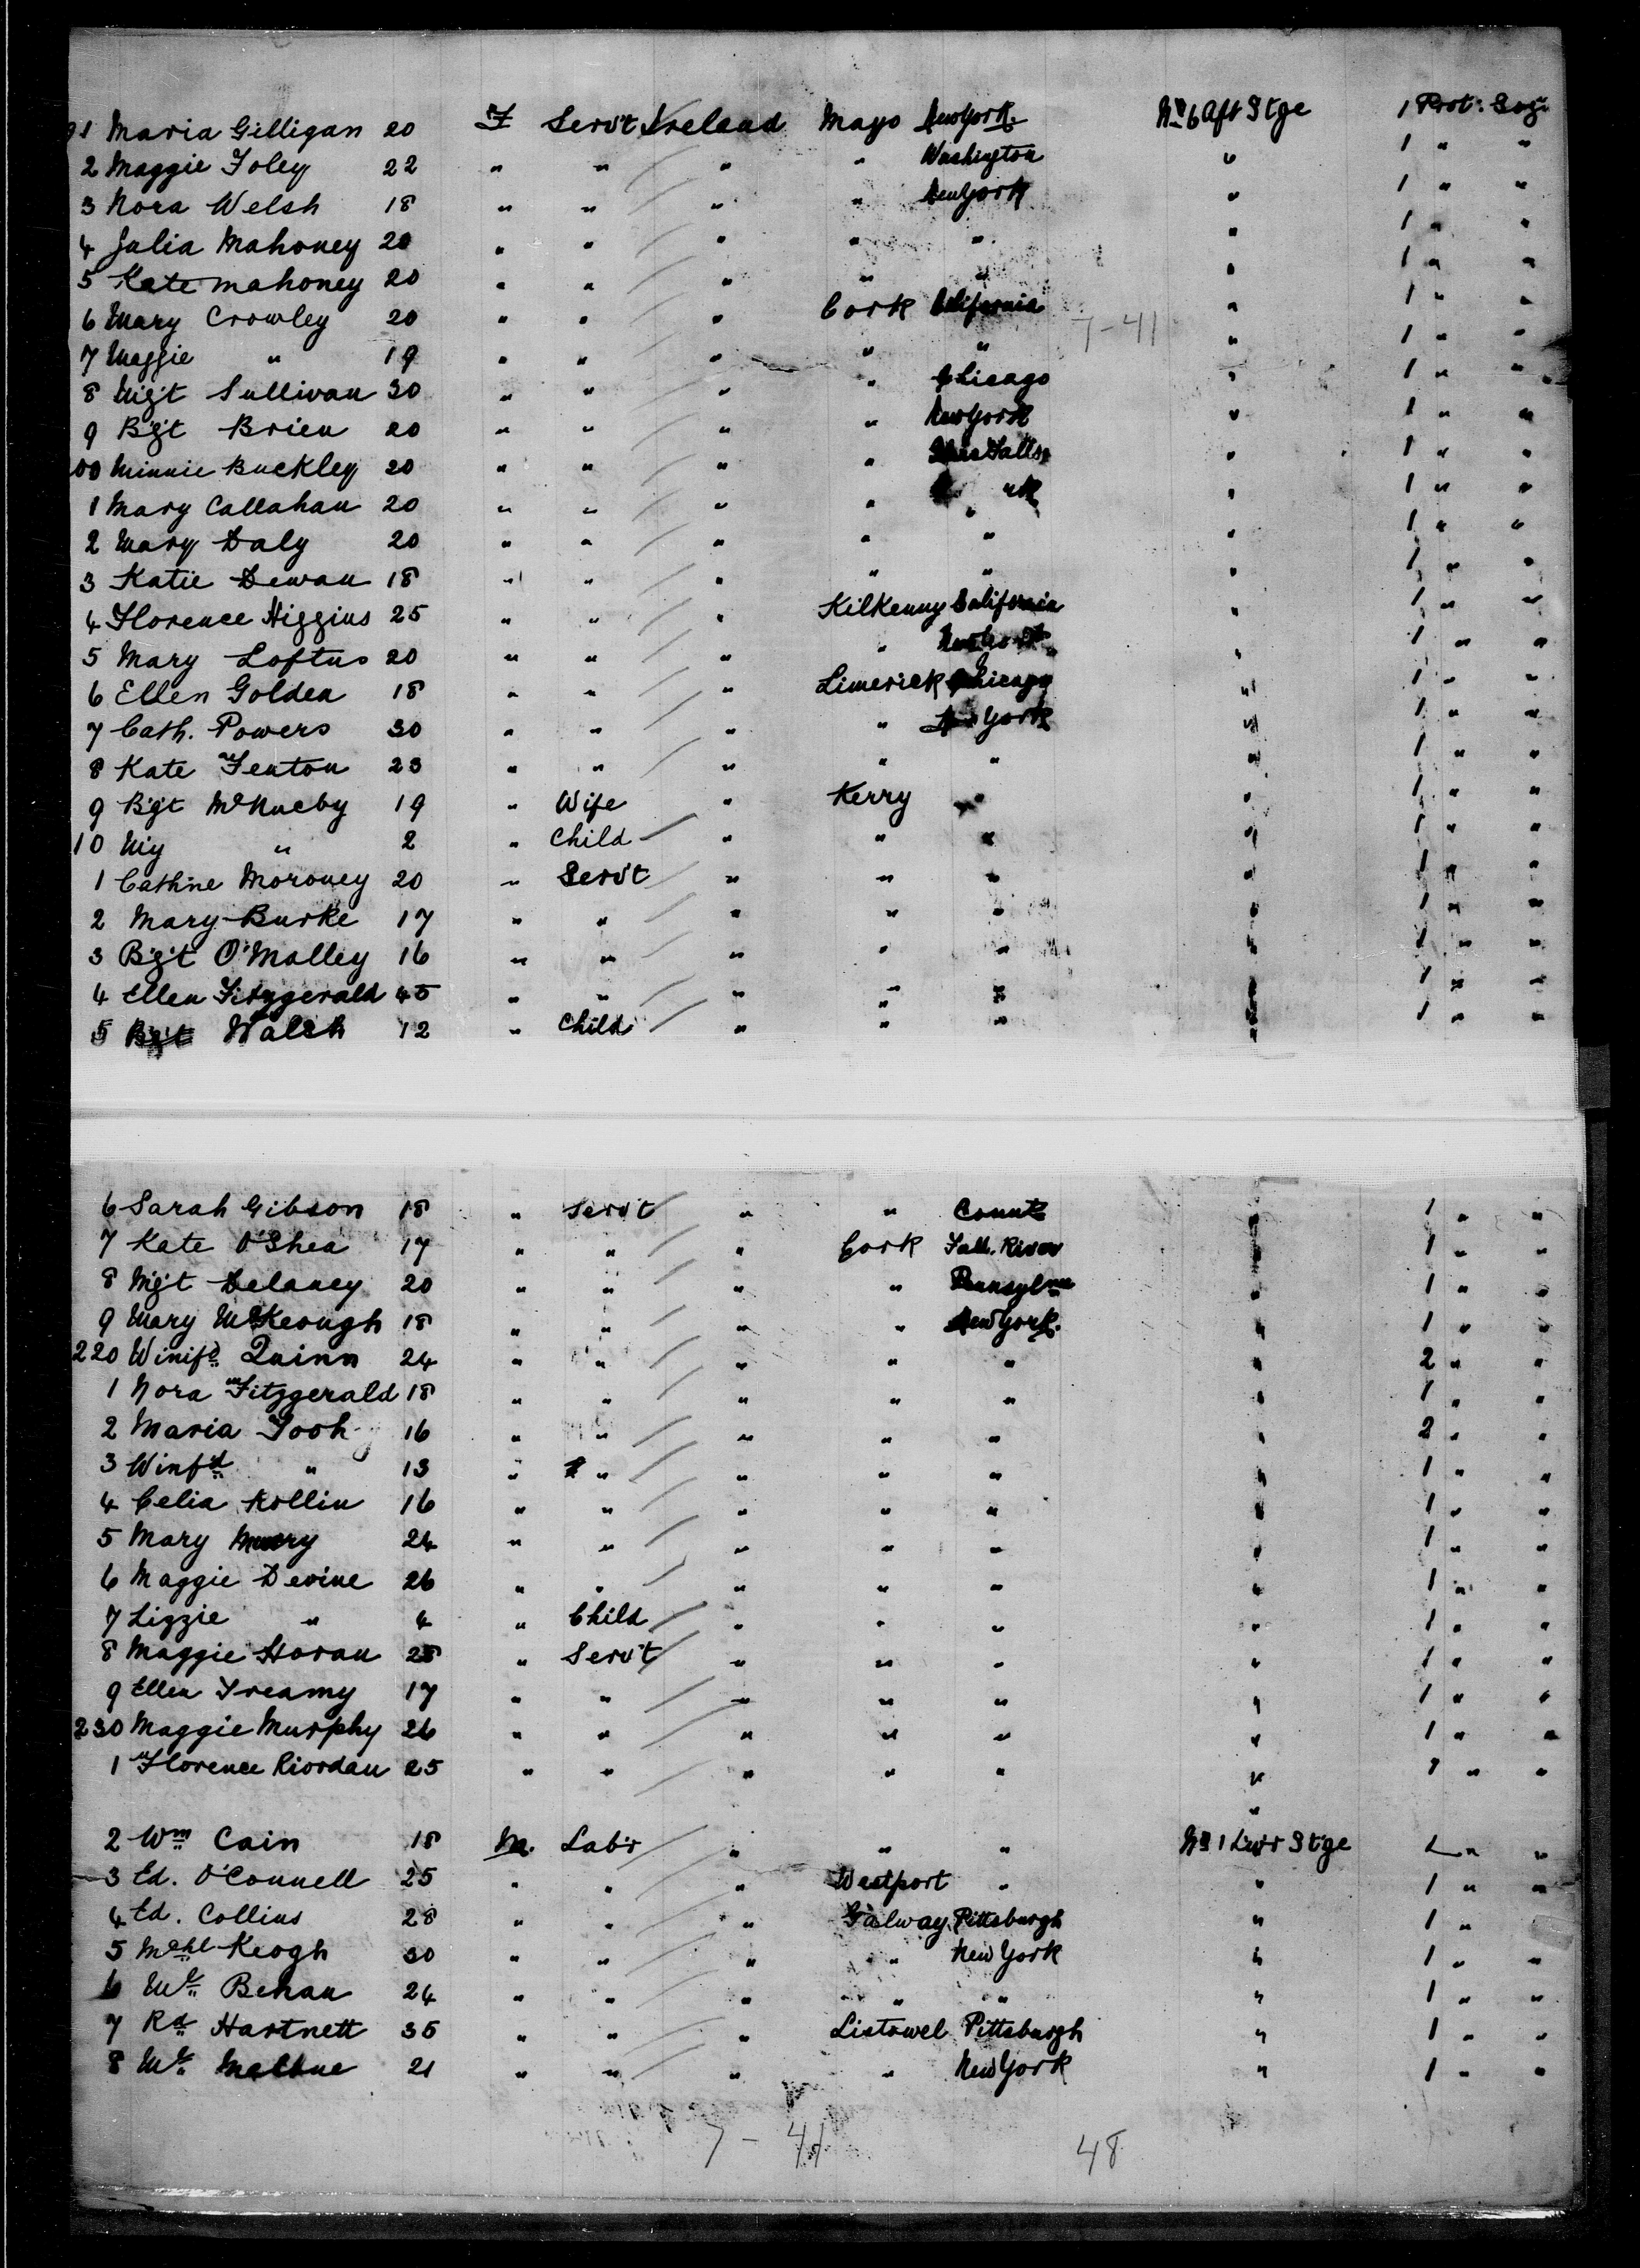 91 Maria Gilligan 20 F Servt Ireland Mayo New York. No 6 Aft Stge 1 Prot. Sog.
2 Maggie Foley 22 " " " " Washington " 1 " "
3 Nora Welsh 18 " " " " New York " 1 " "
4 Julia Mahoney 20 " " " " " " 1 " "
5 Kate Mahoney 20 " " " " " " 1 " "
6 Mary Crowley 20 " " " Cork California 7-41 " 1 " "
7 Maggie " 19 " " " " " " 1 " "
8 Mgt Sullivan 30 " " " " Chicago " 1 " "
9 Bgt Brien 20 " " " " New York " 1 " "
00 Minnie Buckley 20 " " " " Falls " 1 " "
1 Mary Callahan 20 " " " " " 1 " "
2 Mary Daly 20 " " " " " " 1 " "
3 Katie Dewan 18 " " " " " " 1 " "
4 Florence Higgins 25 " " " Kilkenny California " 1 " "
5 Mary Loftus 20 " " " " New York " 1 " "
6 Ellen Golden 18 " " " Limerick Chicago " 1 " "
7 Cath. Powers 30 " " " " New York " 1 " "
8 Kate Fenton 23 " " " " " " 1 " "
9 Bgt 19 " Wife " Kerry " " 1 " "
10 My " 2 " Child " " " " 1 " "
1 Cathne Moroney 20 " Servt " " " " 1 " "
2 Mary Burke 17 " " " " " " 1 " "
3 Bgt O'Malley 16 " " " " " " 1 " "
4 Ellen Fitzgerald 45 " " " " " " 1 " "
5 Bgt Walsh 12 " Child " " " " 1 " "
6 Sarah Gibson 18 " Servt " " Connt " 1 " "
7 Kate O'Shea 17 " " " Cork Fall. River " 1 " "
8 Mgt Delaney 20 " " " " Pennsylna " 1 " "
9 Mary McKeough 18 " " " " New York. " 1 " "
220 Winifd Quinn 24 " " " " " " 2 " "
1 Nora Fitzgerald 18 " " " " " " 1 " "
2 Maria 16 " " " " " " 2 " "
3 Winfd " 13 " " " " " " 1 " "
4 Celia Kollin 16 " " " " " " 1 " "
5 Mary 24 " " " " " " 1 " "
6 Maggie Devine 26 " " " " " " 1 " "
7 Lizzie " 4 " Child " " " " 1 " "
8 Maggie Horan 28 " Servt " " " " 1 " "
9 Ellen Treamy 17 " " " " " " 1 " "
230 Maggie Murphy 26 " " " " " " 1 " "
1 Florence Riordan 25 " " " " " " 1 " "
2 Wm Cain 18 M. Labr " " " No 1 Lwr Stge 1 " "
3 Ed. O'Connell 25 " " " Westport " " 1 " "
4 Ed. Collins 28 " " " Galway Pittsburgh " 1 "
5 Mchl Keogh 30 " " " " New York " 1 " "
6 Ml. Behan 24 " " " " " " 1 " "
7 Rd Hartnett 35 " " " Listowel Pittsburgh " 1 " "
8 Ml. 21 " " " " New York " 1 " "
7-41 48